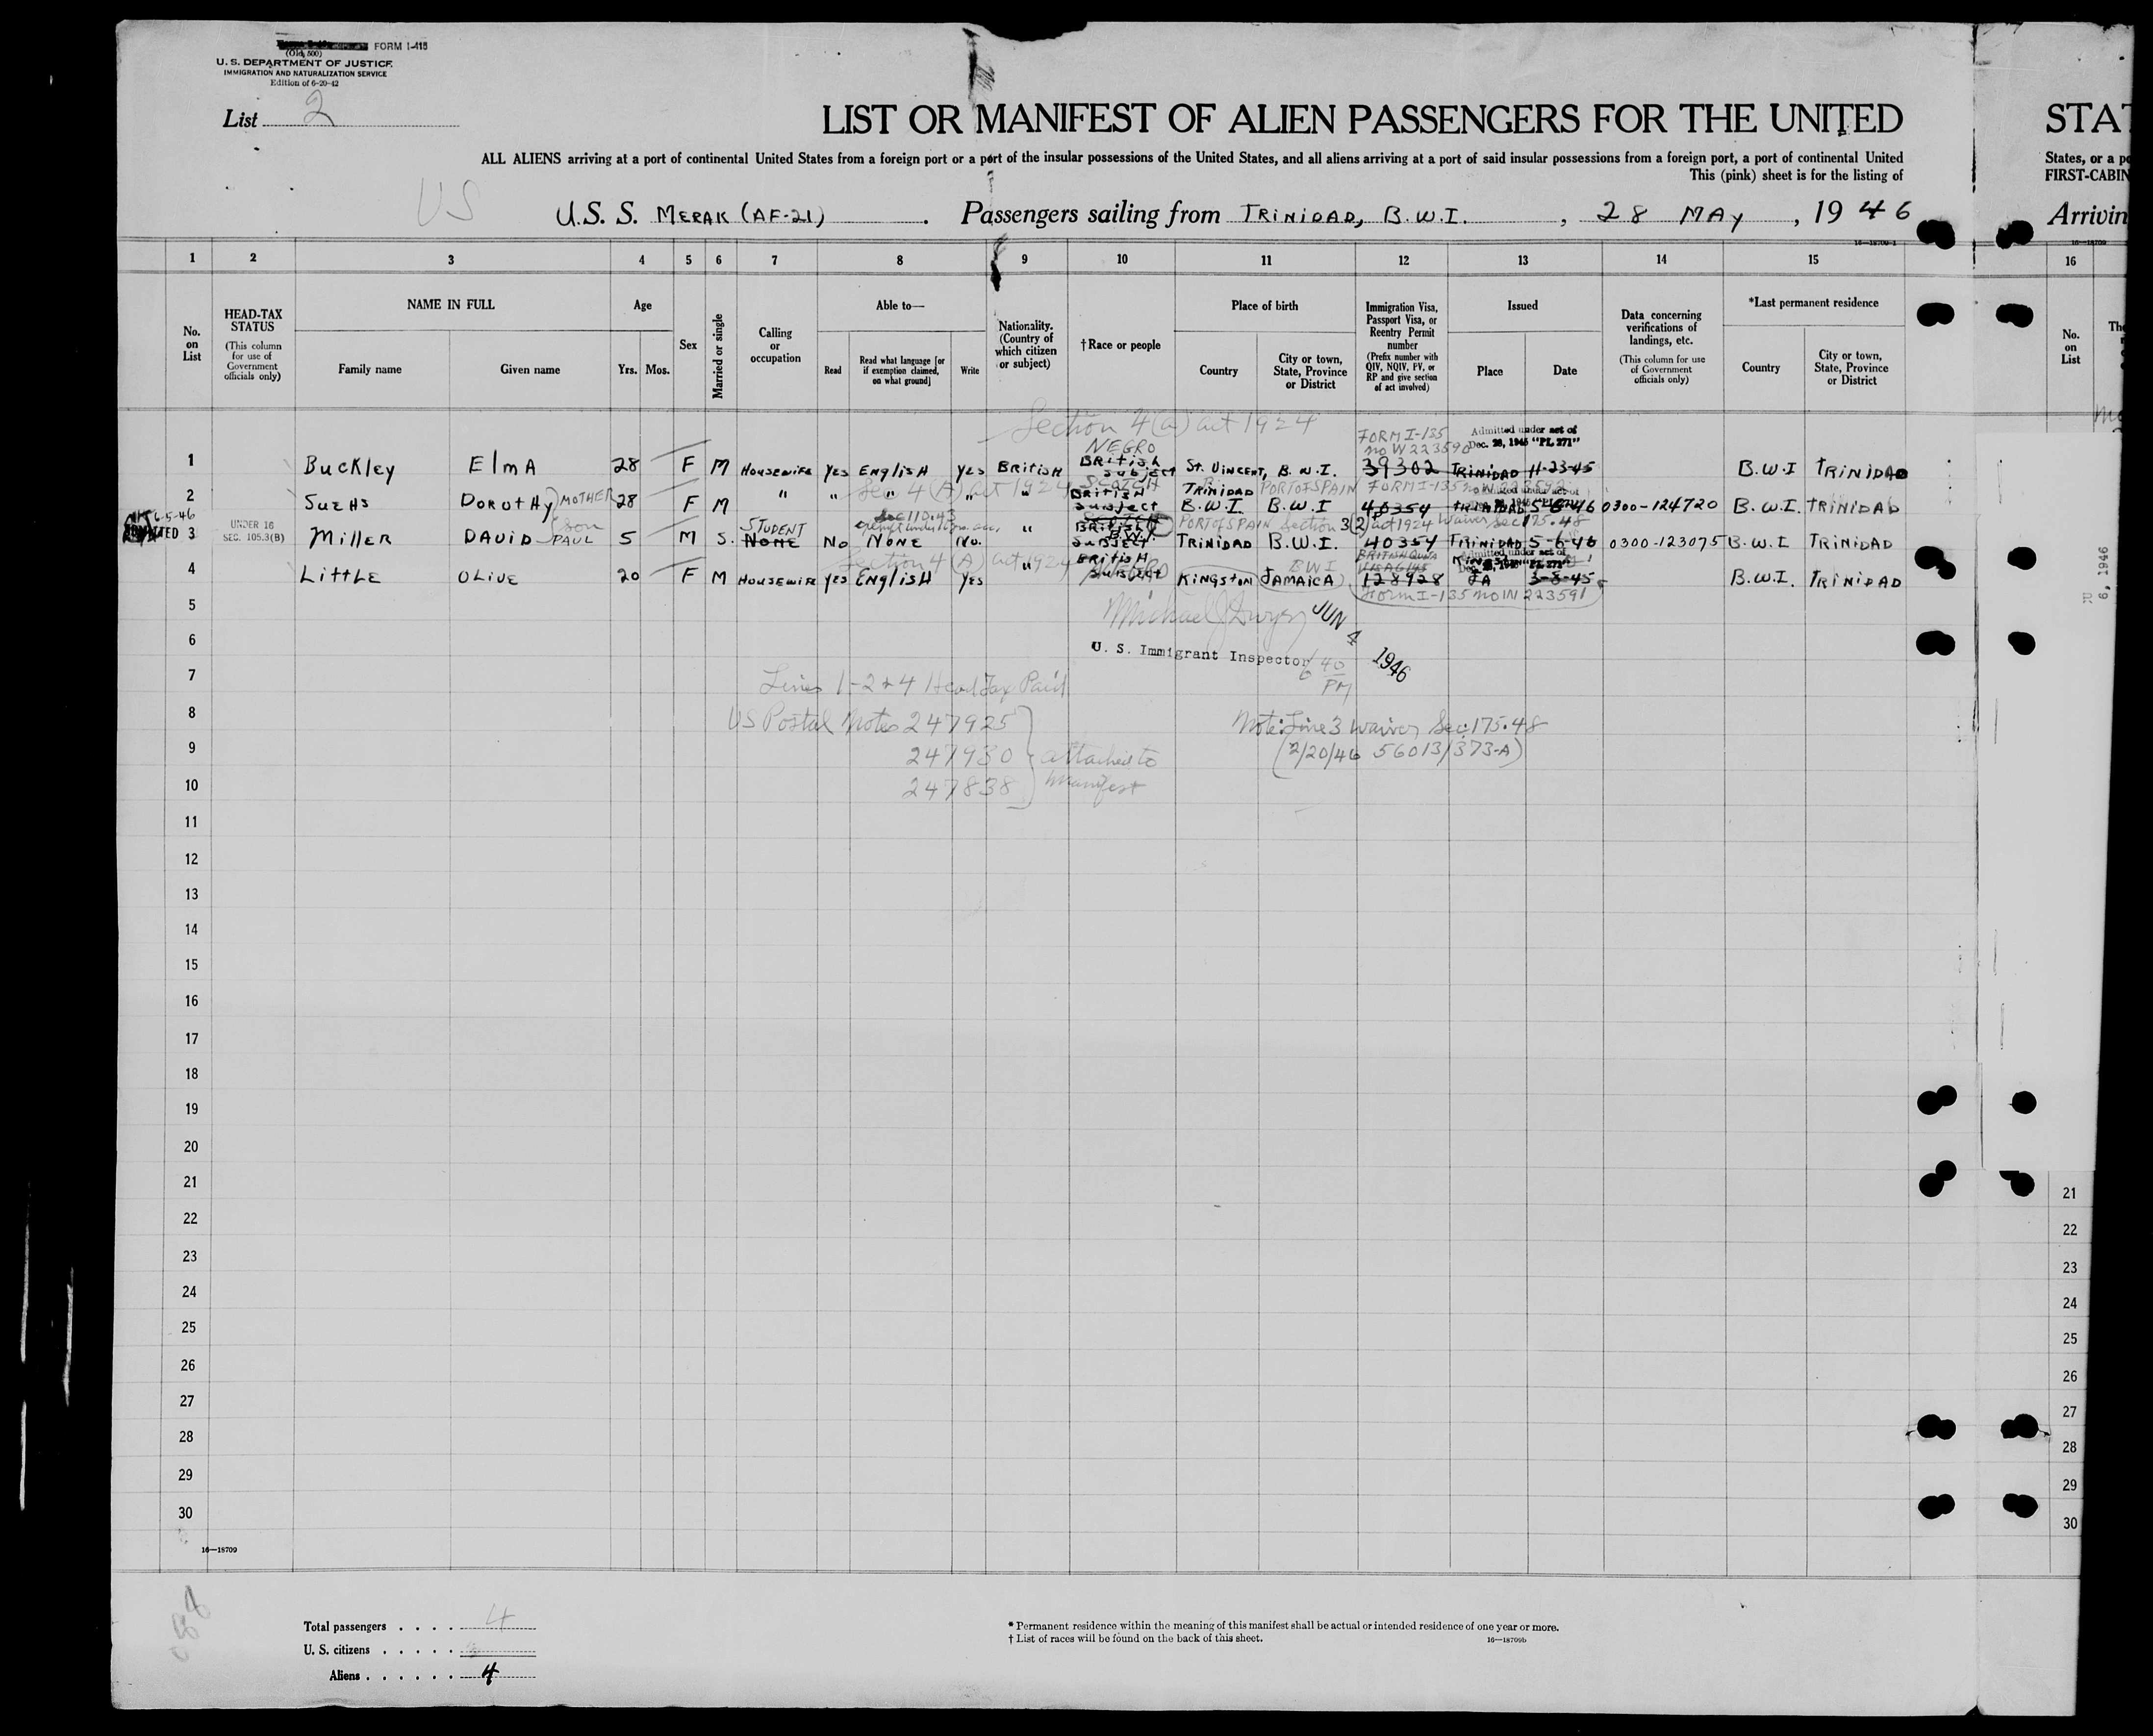 FORM I-415
(Old 500)
U. S. DEPARTMENT OF JUSTICE
IMMIGRATION AND NATURALIZATION SERVICE
Edition of 6-20-42
List 2
LIST OR MANIFEST OF ALIEN PASSENGERS FOR THE UNITED
STAT
ALL ALIENS arriving at a port of continental United States from a foreign port or a port of the insular possessions of the United States, and all aliens arriving at a port of said insular possessions from a foreign port, a port of continental United
States, or a po
This (pink) sheet is for the listing of
FIRST-CABIN
US
U.S.S. MERAK (AF-21). Passengers sailing from TRINIDAD, B.W.I., 28 MAY, 1946
Arrivin
16—18709-1
16—18709
1 2 3 4 5 6 7 8 9 10 11 12 13 14 15 16
No. on List
HEAD-TAX STATUS
(This column for use of Government officials only)
NAME IN FULL
Family name Given name
Age
Yrs. Mos.
Sex
Married or single
Calling or occupation
Able to—
Read
Read what language [or if exemption claimed, on what ground]
Write
Nationality. (Country of which citizen or subject)
†Race or people
Place of birth
Country
City or town, State, Province or District
Immigration Visa, Passport Visa, or Reentry Permit number
(Prefix number with QIV, NQIV, PV, or RP and give section of act involved)
Issued
Place Date
Data concerning verifications of landings, etc.
(This column for use of Government officials only)
*Last permanent residence
Country
City or town, State, Province or District
No. on List
Section 4(a) act 1924
FORM I-135 Admitted under act of
NEGRO no W223590 Dec. 28, 1945 "PL 271"
1 Buckley ElmA 28 F M Housewife Yes EnglisH Yes BritisH British Subject St. Vincent, B.W.I. 39302 TRiNiDAD 11-23-45 B.W.I TRiNiDAD
Sec 4(A) act 1924 SCOTCH PORT OF SPAIN FORM I-135 no W 223592
2 SuEHS DoROtHy MOTHER 28 F M " " " " " BRitisH Subject TRiNiDAD B.W.I. B.W.I 40354 TRiNiDAD 5-6-46 0300-124720 B.W.I. TRiNiDAD
6-5-46
UNDER 16 SEC. 105.3(B)
STUDENT PORT OF SPAIN Section 3(2) act 1924 Waiver Sec 175.48
3 MillER DAViD PAUL son 5 M S. NONE No NONE No. " BRitisH SuBJECT TRiNiDAD B.W.I. 40354 TRiNiDAD 5-6-46 0300-123075 B.W.I TRiNiDAD
Section 4(A) act 1924 NEGRO BWI BRITISH QUOTA Admitted under act of
4 LittLE OLiVE 20 F M Housewife Yes EnglisH Yes " BRitisH Subject KiNgstoN JAMAiCA 128928 KiNgston JA 3-8-45 B.W.I. TRiNiDAD
Form I-135 no IN 223591
5
Michael J Dwyer JUN 4 1946
6
U. S. Immigrant Inspector
6 40 PM
7
Lines 1-2 & 4 Head Tax Paid
8
US Postal Notes 247925
Note: Line 3 Waiver Sec. 175.48
9
247930 attached to
(2/20/46 56013/373-A)
10
247838 manifest
11
12
13
14
15
16
17
18
19
20
21 21
22 22
23 23
24 24
25 25
26 26
27 27
28 28
29 29
30 30
6, 1946
16—18709
Total passengers . . . . 4
U. S. citizens . . . . .
Aliens . . . . . . 4
* Permanent residence within the meaning of this manifest shall be actual or intended residence of one year or more.
† List of races will be found on the back of this sheet.
16—18709b